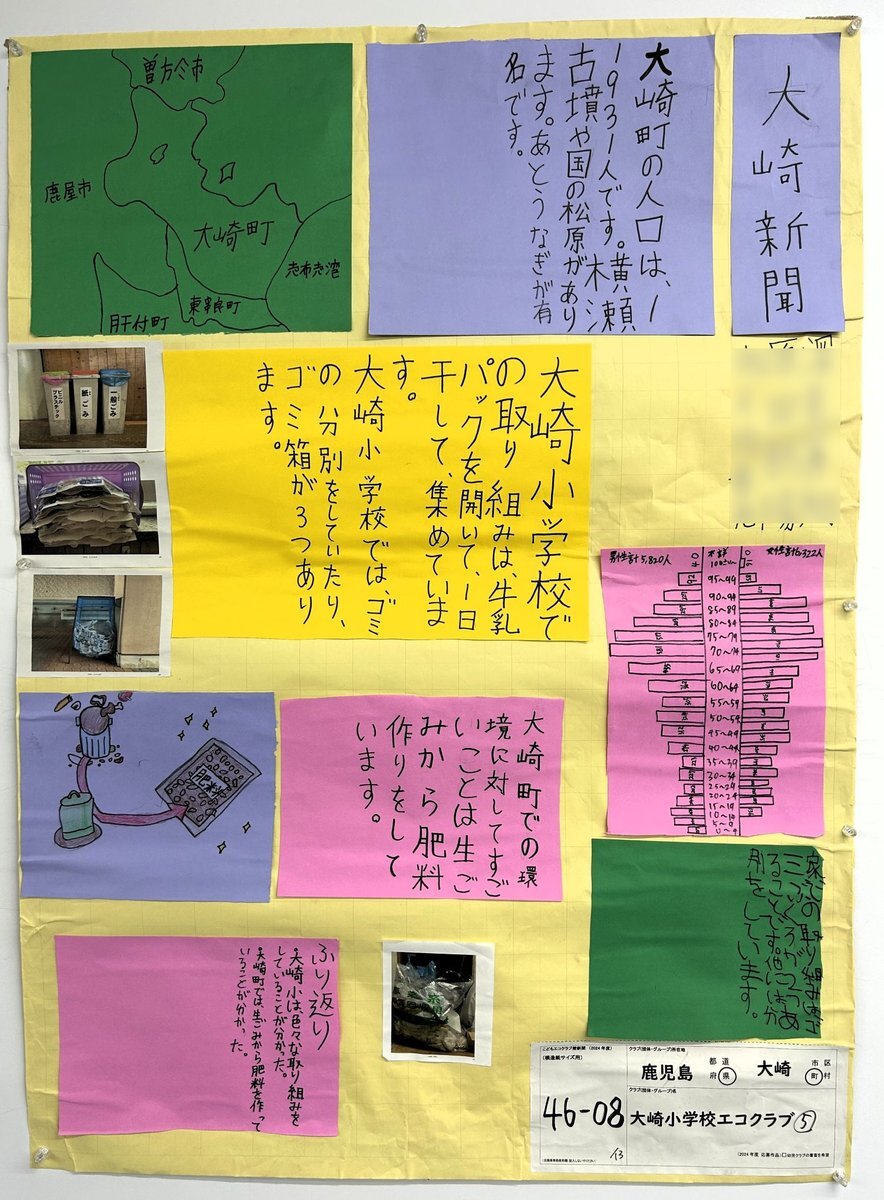 大崎新聞
大崎町の人口は、1
1931人です。横瀬
古墳や国の松原があり
ます。あとうなぎが有
名です。
曽於市
鹿屋市
大崎町
志布志湾
東串良町
肝付町
大崎小学校で
の取り組みは、牛乳
パックを開いて、1日
干して、集めていま
す。
大崎小学校では、ゴミ
の分別をしていたり、
ゴミ箱が3つあり
ます。
紙ごみ
一般ごみ
男性合計5,820人
不詳
女性合計6,322人
95~99
90~94
85~89
80~84
75~79
70~74
65~69
60~64
55~59
50~54
40~44
35~39
30~34
25~29
20~24
15~19
10~14
5~9
0~4
大崎町での環
境に対してすご
いことは生ご
みから肥料
作りをして
います。
肥料
家での取り組みはゴ
ミぶくろが3つあ
ることです。
別をしています。
ふり返り
・大崎小は、色々な取り組みを
していることが分かった。
・大崎町では、生ごみから肥料を作って
いることが分かった。
こどもエコクラブ壁新聞 (2024年度)
(模造紙サイズ用)
クラブ(団体・グループ)所在地
鹿児島 都道府県 大崎 市区町村
クラブ(団体・グループ)名
46-08
大崎小学校エコクラブ⑤
13
(2024年度 応募作品)